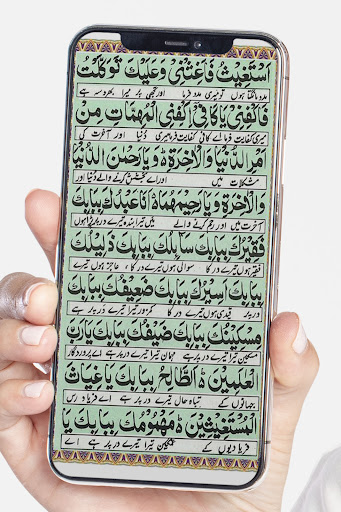 اَسْتَغِيْثُ فَاَغِثْنِيْ وَعَلَيْكَ تَوَكَّلْتُ
مدد مانگتا ہوں تو میری مدد فرما اور تجھی پر میرا بھروسہ ہے
فَاكْفِنِيْ يَا كَافِيْ اكْفِنِي الْمُهِمَّاتِ مِنْ
میری کفایت فرما اے کافی کفایت فرما میری دُنیا اور آخرت کی
اَمْرِ الدُّنْيَا وَالْاٰخِرَةِ ۞ وَيَا رَحْمٰنَ الدُّنْيَا
مشکلات میں اور اے بخشش کرنے والے دُنیا اور
وَالْاٰخِرَةِ وَيَا رَحِيْمَهُمَا ۞ اَنَا عَبْدُكَ بِبَابِكَ
آخرت میں اور رحم کرنے والے میں تیرا بندہ تیرے در پر پڑا ہوں
فَقِيْرُكَ بِبَابِكَ سَائِلُكَ بِبَابِكَ ذَلِيْلُكَ
فقیر ہوں تیرے در کا سوالی ہوں تیرے در کا عاجز ہوں تیرے
بِبَابِكَ اَسِيْرُكَ بِبَابِكَ ضَعِيْفُكَ بِبَابِكَ
در پر قیدی ہوں تیرے در کا کمزور تیرا تیرے در پر ہے
مِسْكِيْنُكَ بِبَابِكَ ضَيْفُكَ بِبَابِكَ يَا رَبَّ
مسکین تیرا تیرے در پر ہے مہمان تیرا تیرے در پر ہے اے پروردگار
الْعٰلَمِيْنَ ۞ الطَّالِحُ بِبَابِكَ يَا غِيَاثَ
جہانوں کے تباہ حال تیرے در پر ہے اے فریاد رس
الْمُسْتَغِيْثِيْنَ ۞ مَهْمُوْمُكَ بِبَابِكَ يَا
فریادیوں کے غمگین تیرا تیرے در پر ہے اے